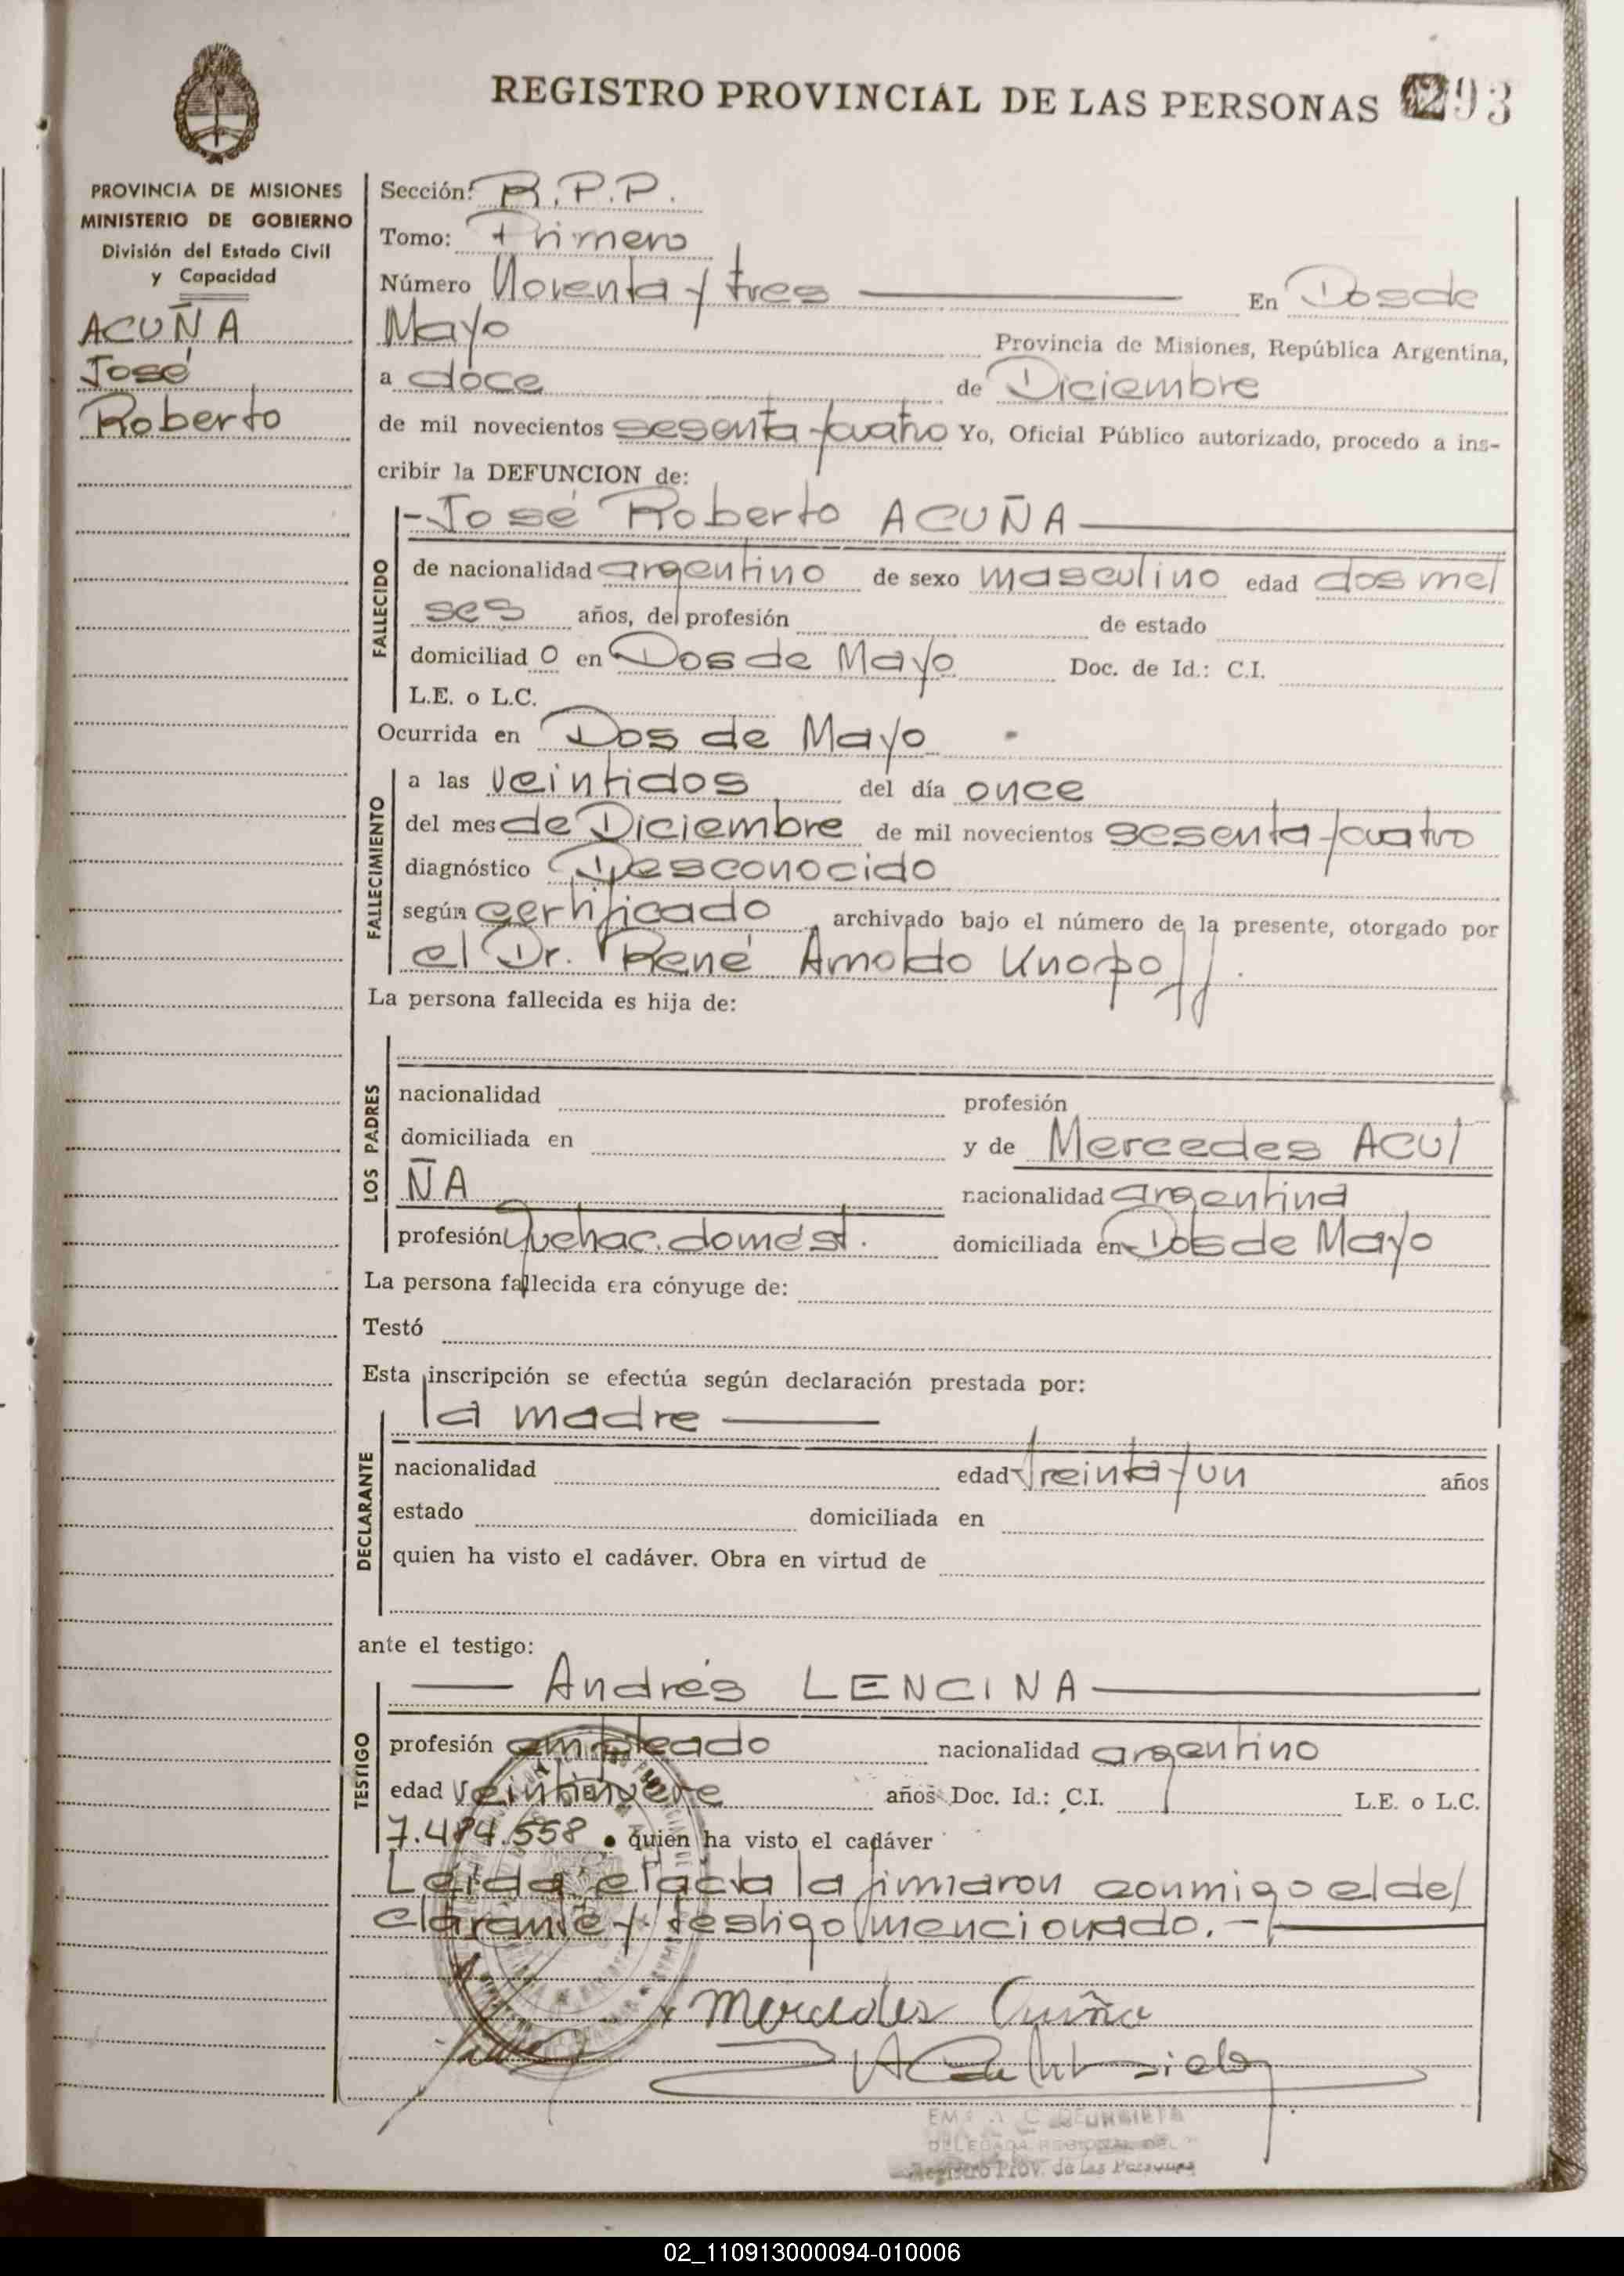 REGISTRO PROVINCIAL DE LAS PERSONAS 293
PROVINCIA DE MISIONES
MINISTERIO DE GOBIERNO
División del Estado Civil
y Capacidad
ACUÑA
José
Roberto
Sección: R.P.P.
Tomo: Primero
Número Noventa y tres En Dos de
Mayo Provincia de Misiones, República Argentina,
a doce de Diciembre
de mil novecientos sesenta y cuatro Yo, Oficial Público autorizado, procedo a ins-
cribir la DEFUNCION de:
- José Roberto ACUÑA
FALLECIDO
de nacionalidad argentino de sexo masculino edad dos me/
ses años, de profesión de estado
domiciliado en Dos de Mayo Doc. de Id.: C.I.
L.E. o L.C.
Ocurrida en Dos de Mayo
FALLECIMIENTO
a las veintidos del día once
del mes de Diciembre de mil novecientos sesenta y cuatro
diagnóstico Desconocido
según certificado archivado bajo el número de la presente, otorgado por
el Dr. René Arnoldo Knopoff.
La persona fallecida es hija de:
LOS PADRES
nacionalidad profesión
domiciliada en y de Mercedes ACU/
ÑA nacionalidad argentina
profesión Quehac. domést. domiciliada en Dos de Mayo
La persona fallecida era cónyuge de:
Testó
Esta inscripción se efectúa según declaración prestada por:
la madre
DECLARANTE
nacionalidad edad treinta y un años
estado domiciliada en
quien ha visto el cadáver. Obra en virtud de
ante el testigo:
Andrés LENCINA
TESTIGO
profesión empleado nacionalidad argentino
edad veintinueve años Doc. Id.: C.I. L.E. o L.C.
7.484.558. quien ha visto el cadáver
Leída el acta la firmaron conmigo el de/
clarante y testigo mencionado. -
Mercedes Acuña
DELEGADA REGIONAL DEL
Registro Prov. de las Personas
02_110913000094-010006